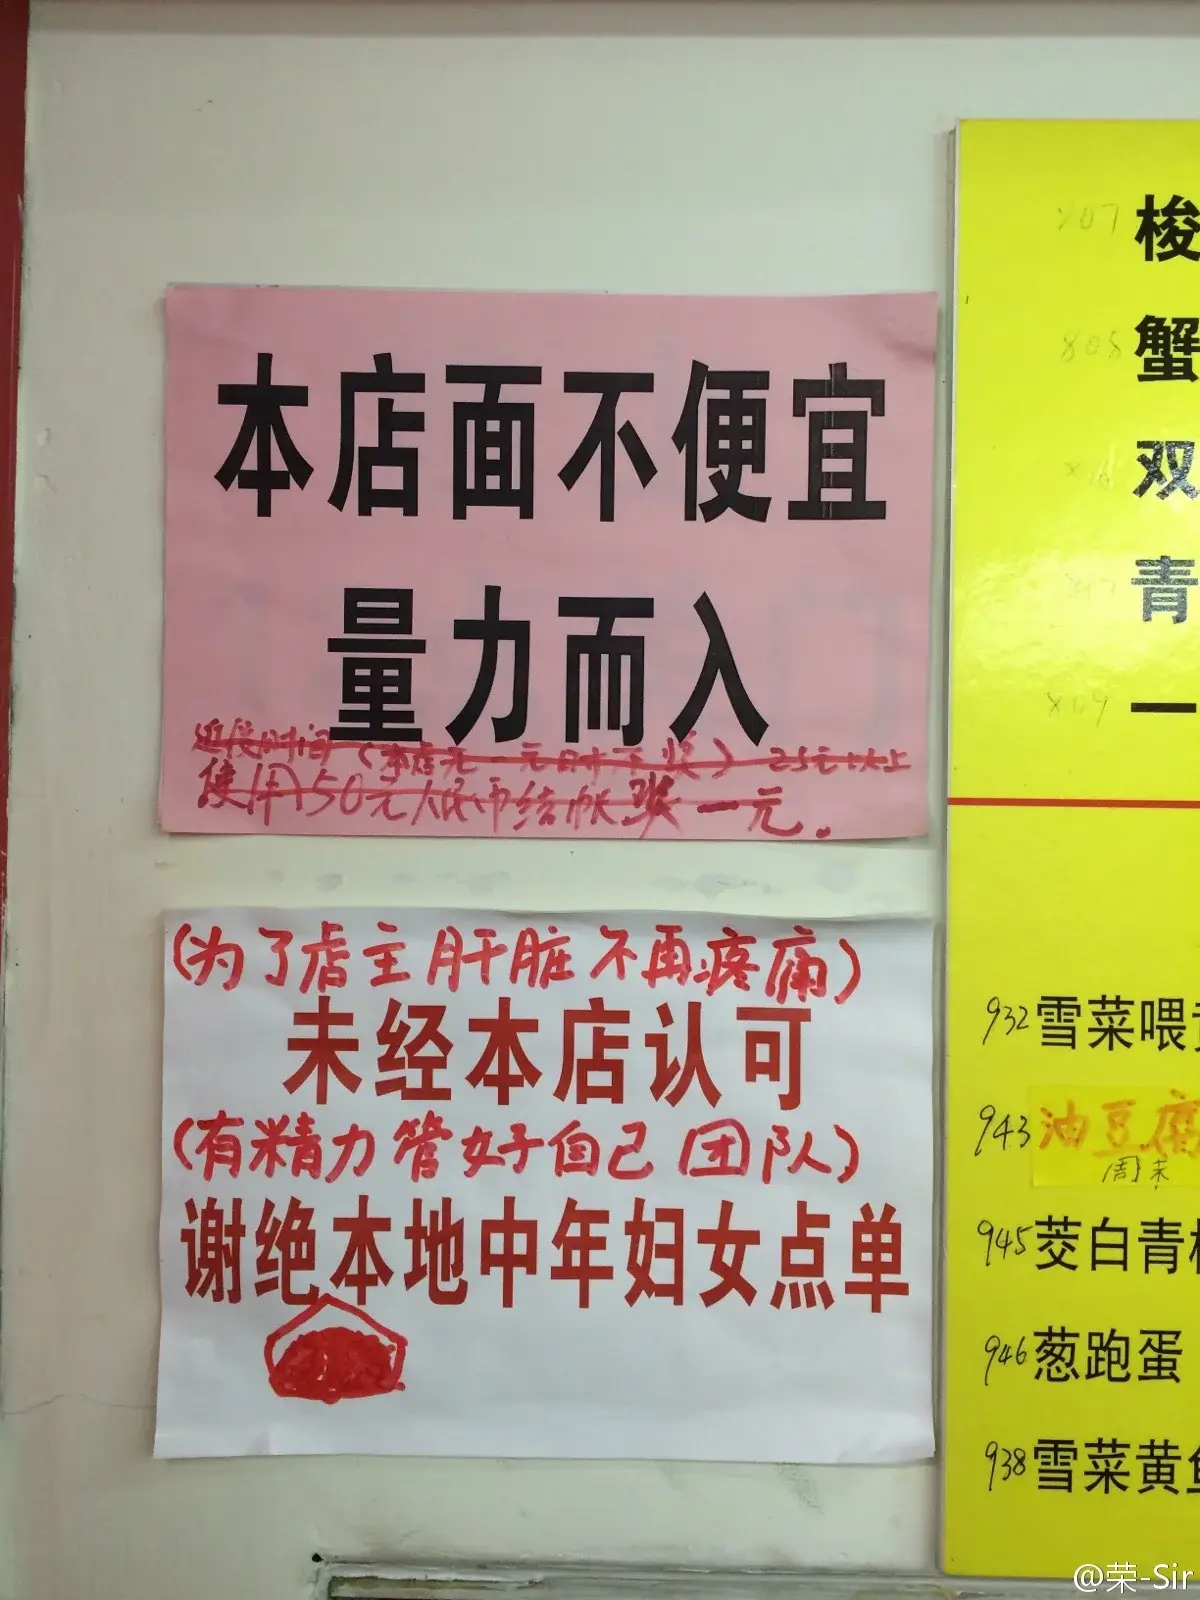 本店面不便宜
量力而入
延长时间(本店元一元时不奖) 25元以上
使用50元人民币结帐奖一元.
(为了店主肝脏不再疼痛)
未经本店认可
(有精力管好自己团队)
谢绝本地中年妇女点单
807 梭
808 蟹
双
青
一
932 雪菜喂
943 油豆腐
周末
945 茭白青
946 葱跑蛋
938 雪菜黄鱼
@荣-Sir